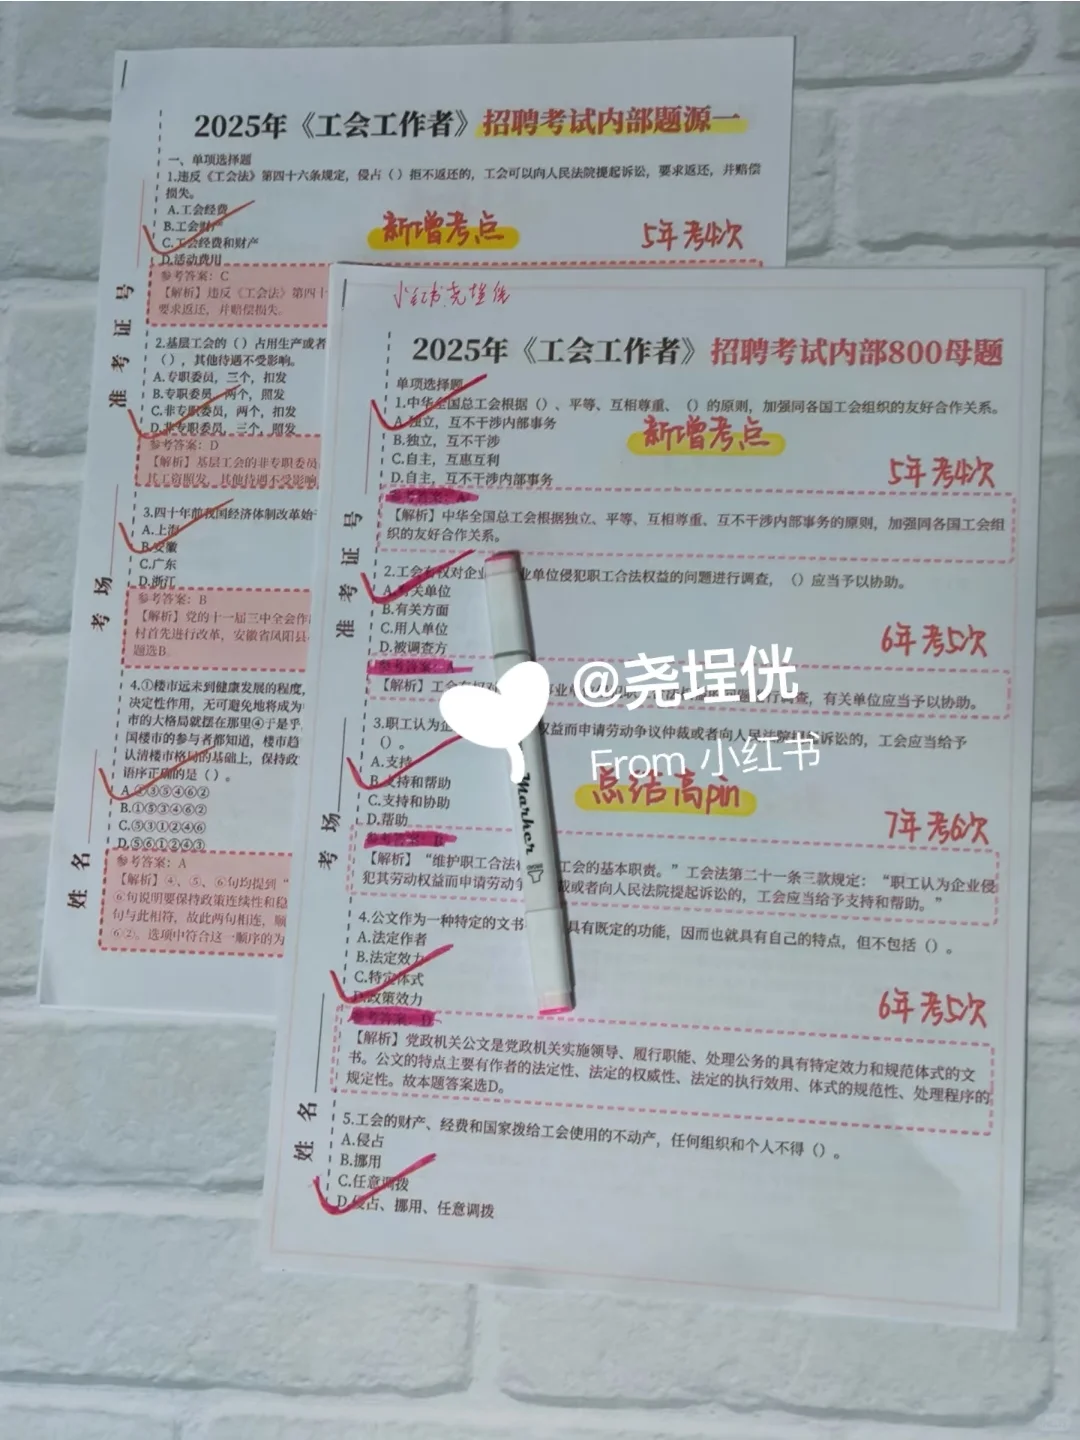 2025年《工会工作者》招聘考试内部题源一
一、单项选择题
1.违反《工会法》第四十六条规定，侵占（）拒不返还的，工会可以向人民法院提起诉讼，要求返还，并赔偿
损失。
A.工会经费
B.工会财产
C.工会经费和财产
D.活动费用
新增考点
5年考4次
参考答案：C
【解析】违反《工会法》第四十
要求返还，并赔偿损失。
2.基层工会的（）占用生产或者
（），其他待遇不受影响。
A.专职委员，三个，扣发
B.专职委员，两个，照发
C.非专职委员，两个，扣发
D.非专职委员，三个，照发
参考答案：D
【解析】基层工会的非专职委员
其工资照发，其他待遇不受影响
3.四十年前我国经济体制改革始于
A.上海
B.安徽
C.广东
D.浙江
参考答案：B
【解析】党的十一届三中全会作
村首先进行改革，安徽省凤阳县
题选B。
4.①楼市远未到健康发展的程度，
决定性作用，无可避免地将成为
市的大格局就摆在那里④于是乎
国楼市的参与者都知道，楼市趋
认清楼市格局的基础上，保持政
语序正确的是（）。
A.②③⑤④⑥②
B.①⑤③④⑥②
C.⑤③①②④⑥
D.⑤⑥①②④③
参考答案：A
【解析】④、⑤、⑥句均提到“
⑥句说明要保持政策连续性和稳
句与此相符，故此两句相连，顺
⑥②。选项中符合这一顺序的为
准考证号
考场
姓名
小红书尧埕侊
2025年《工会工作者》招聘考试内部800母题
单项选择题
1.中华全国总工会根据（）、平等、互相尊重、（）的原则，加强同各国工会组织的友好合作关系。
A.独立，互不干涉内部事务
B.独立，互不干涉
C.自主，互惠互利
D.自主，互不干涉内部事务
新增考点
5年考4次
参考答案：A
【解析】中华全国总工会根据独立、平等、互相尊重、互不干涉内部事务的原则，加强同各国工会组
织的友好合作关系。
2.工会有权对企业单位侵犯职工合法权益的问题进行调查，（）应当予以协助。
A.有关单位
B.有关方面
C.用人单位
D.被调查方
6年考5次
参考答案：A
【解析】工会有权对事业单位进行调查，有关单位应当予以协助。
3.职工认为企权益而申请劳动争议仲裁或者向人民法院提起诉讼的，工会应当给予
（）。
A.支持
B.支持和帮助
C.支持和协助
D.帮助
总结高pin
7年考6次
参考答案：B
【解析】“维护职工合法工会的基本职责。”工会法第二十一条三款规定：“职工认为企业侵
犯其劳动权益而申请劳动争裁或者向人民法院提起诉讼的，工会应当给予支持和帮助。”
4.公文作为一种特定的文书具有既定的功能，因而也就具有自己的特点，但不包括（）。
A.法定作者
B.法定效力
C.特定体式
D.政策效力
6年考5次
参考答案：D
【解析】党政机关公文是党政机关实施领导、履行职能、处理公务的具有特定效力和规范体式的文
书。公文的特点主要有作者的法定性、法定的权威性、法定的执行效用、体式的规范性、处理程序的
规定性。故本题答案选D。
5.工会的财产、经费和国家拨给工会使用的不动产，任何组织和个人不得（）。
A.侵占
B.挪用
C.任意调拨
D.侵占、挪用、任意调拨
准考证号
考场
姓名
Marker
@尧埕侊
From 小红书